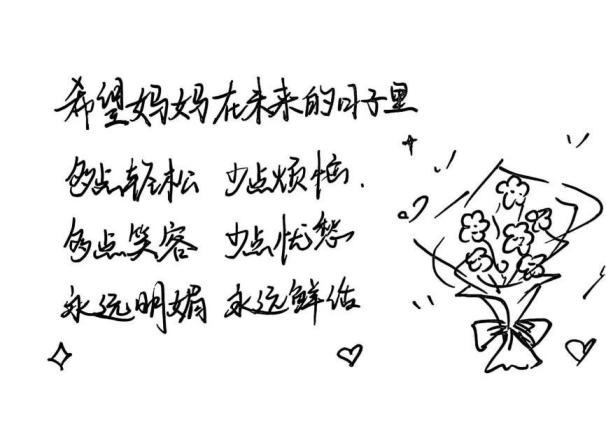 希望妈妈在未来的日子里
多点轻松 少点烦恼.
多点笑容 少点忧愁
永远明媚 永远鲜活